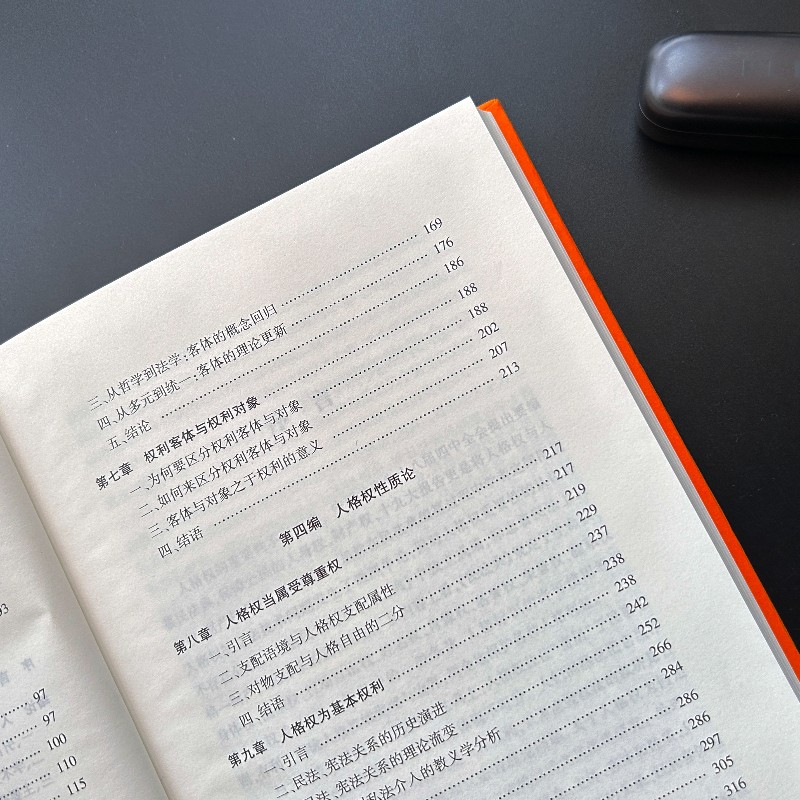 93
97
97
100
110
115
三、从哲学到法学:客体的概念回归 …… 169
四、从多元到统一:客体的理论更新 …… 176
五、结论 …… 186
第七章 权利客体与权利对象 …… 188
一、为何要区分权利客体与对象 …… 188
二、如何来区分权利客体与对象 …… 202
三、客体与对象之于权利的意义 …… 207
四、结语 …… 213
第四编 人格权性质论
第八章 人格权当属受尊重权 …… 217
一、引言 …… 217
二、支配语境与人格权支配属性 …… 219
三、对物支配与人格自由的二分 …… 229
四、结语 …… 237
第九章 人格权为基本权利 …… 238
一、引言 …… 238
二、民法、宪法关系的历史演进 …… 242
民法、宪法关系的理论流变 …… 252
私法介入的教义学分析 …… 266
284
286
286
297
305
316